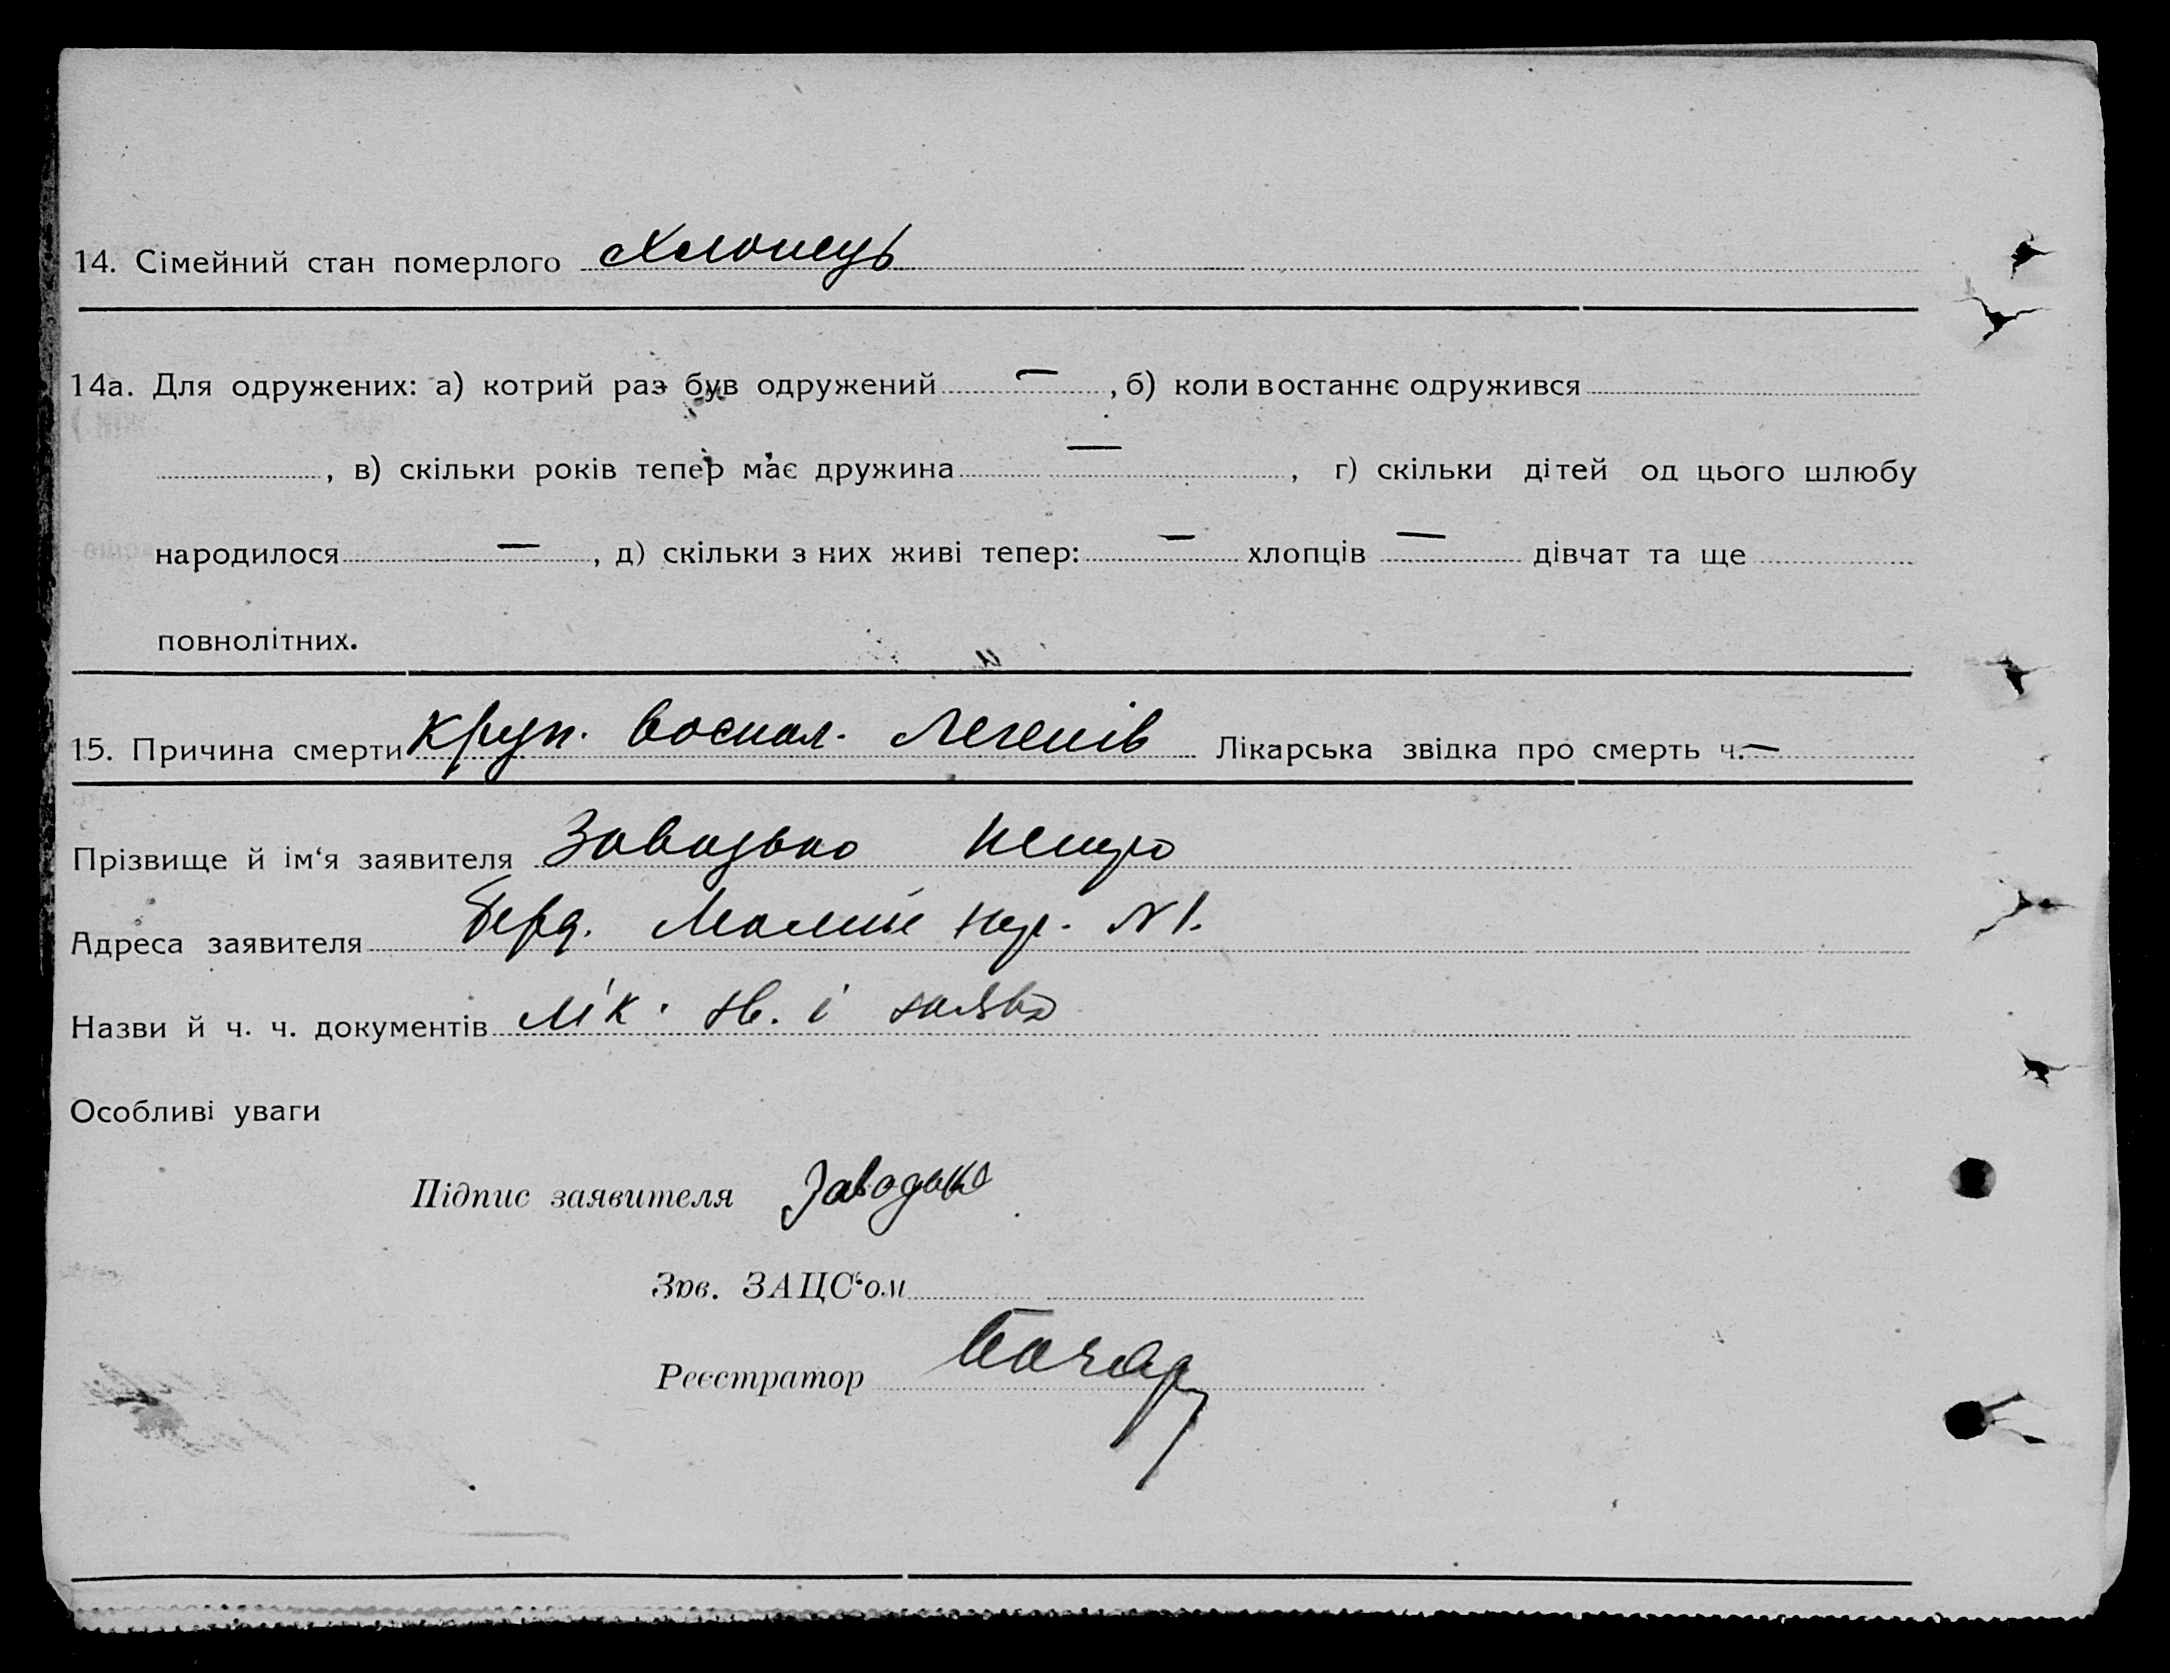 14. Сімейний стан померлого Хлопець
14а. Для одружених: а) котрий раз був одружений — , б) коли востаннє одружився
, в) скільки років тепер має дружина — , г) скільки дітей од цього шлюбу
народилося — , д) скільки з них живі тепер: — хлопців — дівчат та ще
повнолітних.
15. Причина смерти Круп. воспал. легенів Лікарська звідка про смерть ч. —
Прізвище й ім‘я заявителя Заводько Петро
Адреса заявителя Берд. №1.
Назви й ч. ч. документів лік. зв. і заява
Особливі уваги
Підпис заявителя Заводько
Зав. ЗАЦС‘ом
Реєстратор Бочар